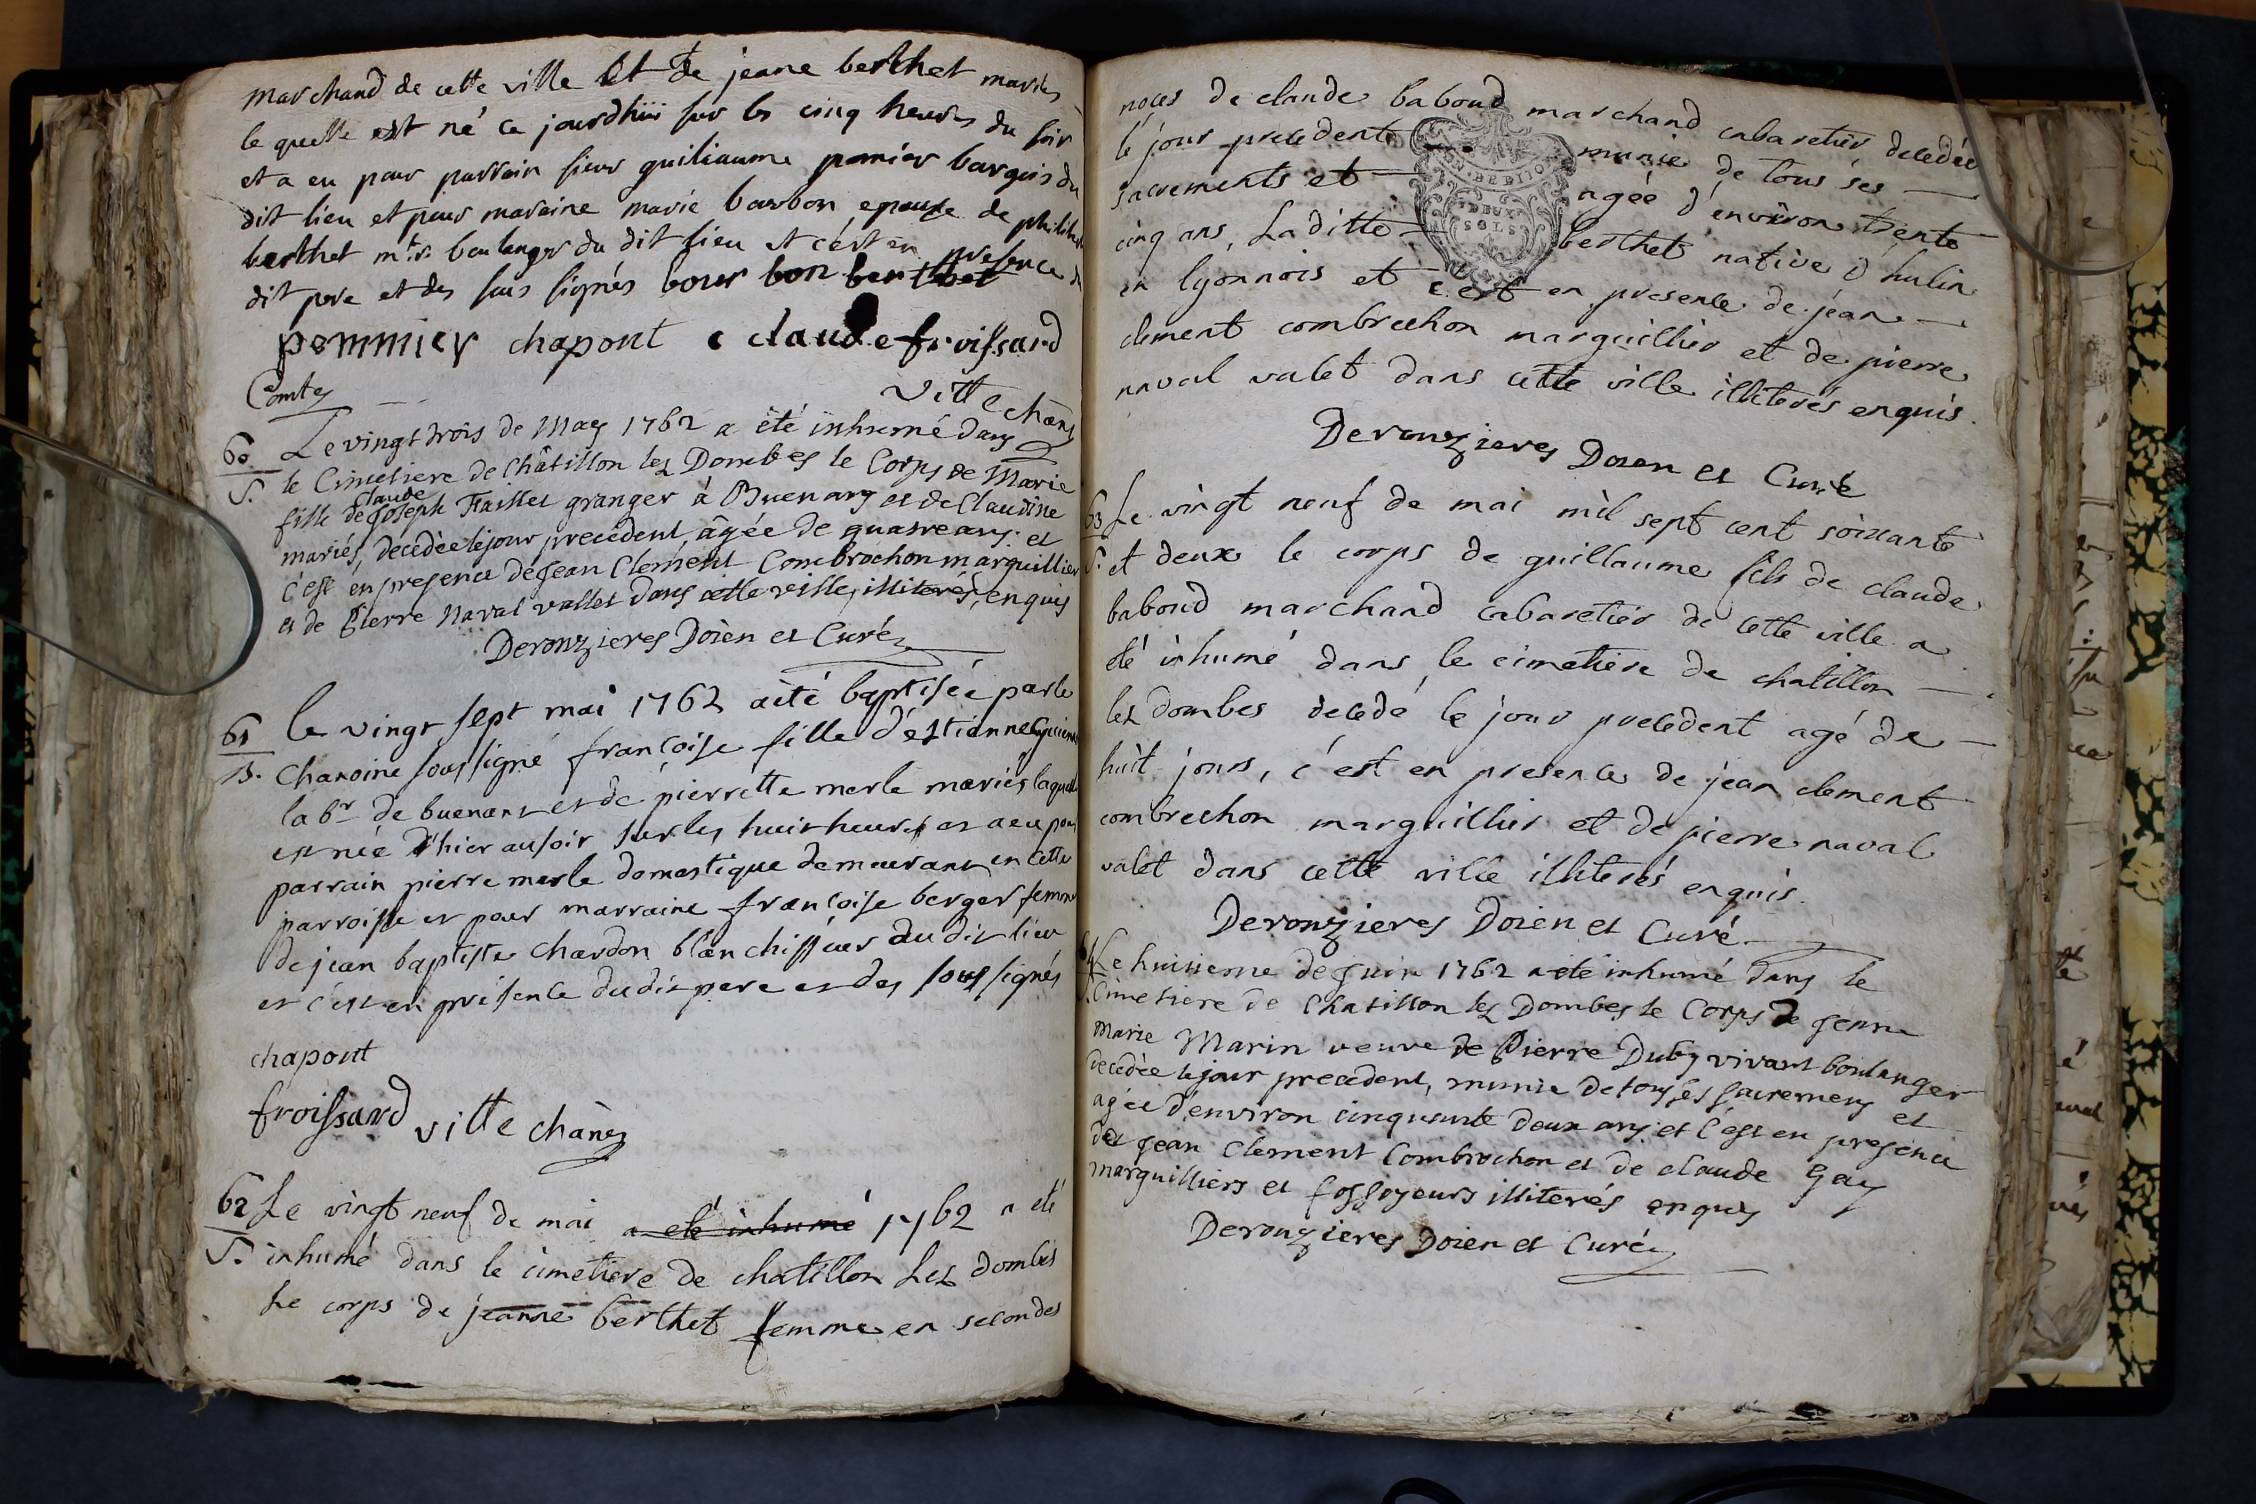 marchand de cette ville Et de jeane berthet mariés
le quelle est né ce jourdhui sur les cinq heures du soir
et a eu pour parrain sieur guiliaume pomier bargois du
dit lieu et pour maraine marie bourbon epouse de philibert
berthet mtr. boulanger du dit lieu et c'est en presence du
dit pere et des sous signés bour bon berthet
pommier chapont c claude froissard
Comte
ville chânes
60 Le vingt trois de May 1762 a eté inhumé dans
S. le Cimetiere de Châtillon lez Dombes le Corps de Marie
claude
fille de Joseph granger à Buenans et de Claudine
mariés, décédée le jour precédent, âgée de quatre ans. et
c'est en presence de Jean Clement Combrochon marguillier
et de Pierre Naval vallet dans cette ville, illiterés, enquis
Deronzieres Doien et Curé
61 le vingt sept mai 1762 a été baptisée par le
B. Chanoine sous signé françoise fille d'estienne
la br de buenans et de pierrette merle mariés laquelle
est née d'hier au soir sur les huit heures et a eu pour
parrain pierre merle domestique demeurant en cette
parroisse et pour marraine françoise berger femme
de jean baptiste chardon blanchisseur du dit lieu
et c'est en présence du dit pere et des sous signés
chapont
froissard ville chânes
62 Le vingt neuf de mai a eté inhumé 1762 a eté
S. inhumé dans le cimetiere de chatillon Lez dombes
Le corps de jeanne berthet femme en secondes
noces de claude baboud marchand cabaretier decedée
le jour precedent munie de tous ses
sacrements et agée d'environ trente
cinq ans, La ditte berthet native d'hulin
en lyonnois et c'est en presence de jean
clement combrechon marguillier et de pierre
naval valet dans cette ville illiterés enquis.
Deronzieres Doien et Curé
63 Le vingt neuf de mai mil sept cent soixante
S. et deux le corps de guillaume fils de claude
baboud marchand cabaretier de cette ville a
eté inhumé dans le cimetiere de chatillon
lez dombes decedé le jour precedent agé de
huit jours, c'est en presence de jean clement
combrechon marguillier et de pierre naval
valet dans cette ville illiterés enquis.
Deronzieres Doien et Curé
64 Le huitieme de Juin 1762 a eté inhumé dans le
S. Cimetiere de Chatillon lez Dombes le Corps de Jeanne
Marie Marin veuve de Pierre Duby vivant boulanger
decédée le jour precédent, munie de tous ses sacremens et
agée d'environ cinquante deux ans. et c'est en presence
de Jean Clement Combrochon et de claude Gay
marguilliers et fossoyeurs illiterés enquis
Deronzieres Doien et Curé